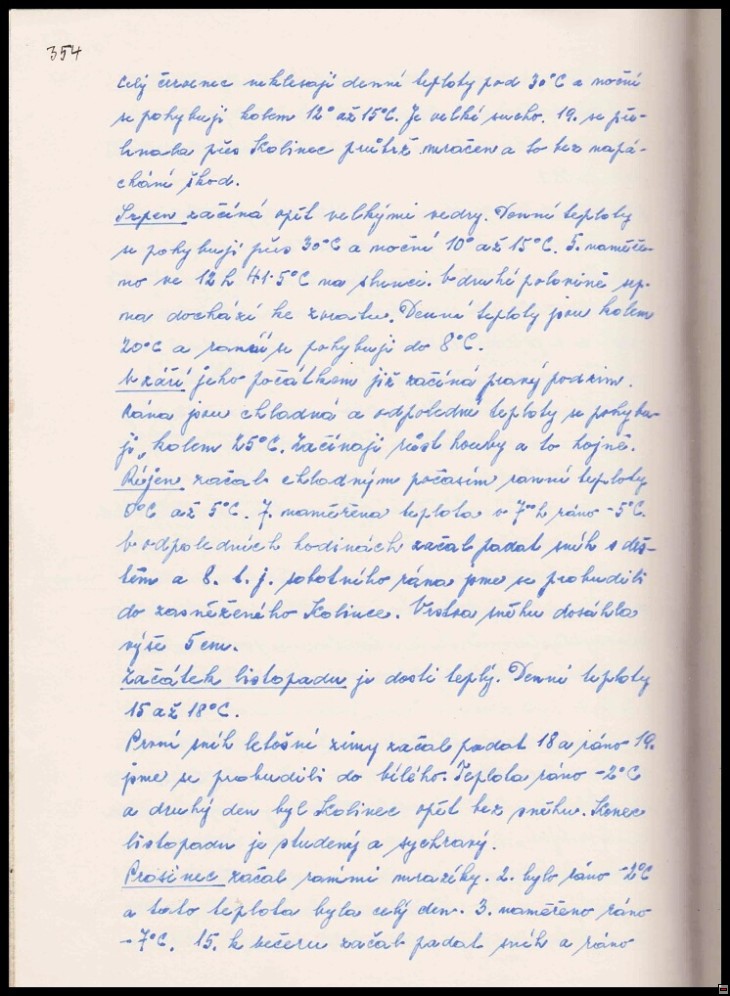 354
Celý červenec neklesají denní teploty pod 30°C a noční
se pohybují kolem 12° až 15°C. Je velké sucho. 19. se pře-
hnala přes Kolinec průtrž mračen a to bez napá-
chání škod.
Srpen začíná opět velkými vedry. Denní teploty
se pohybují přes 30°C a noční 10° až 15°C. 5. naměře-
no ve 12 h 41·5°C na slunci. V druhé polovině srp-
na dochází ke zvratu. Denní teploty jsou kolem
20°C a ranní se pohybují do 8°C.
V září jeho počátkem již začíná pravý podzim.
Rána jsou chladná a odpolední teploty se pohybu-
jí kolem 25°C. Začínají růst houby a to hojně.
Říjen začal chladným počasím ranní teploty
0°C až 5°C. 7. naměřena teplota v 7 h ráno -5°C.
V odpoledních hodinách začal padat sníh s deš-
těm a 8. t. j. sobotního rána jsme se probudili
do zasněženého Kolince. Vrstva sněhu dosáhla
výše 5 cm.
Začátek listopadu je dosti teplý. Denní teploty
15 až 18°C.
První sníh letošní zimy začal padat 18 a ráno 19.
jsme se probudili do bílého. Teplota ráno -2°C
a druhý den byl Kolinec opět bez sněhu. Konec
listopadu je studený a sychravý.
Prosinec začal ranními mrazíky. 2. bylo ráno -2°C
a tato teplota byla celý den. 3. naměřeno ráno
-7°C. 15. k večeru začal padat sníh a ráno